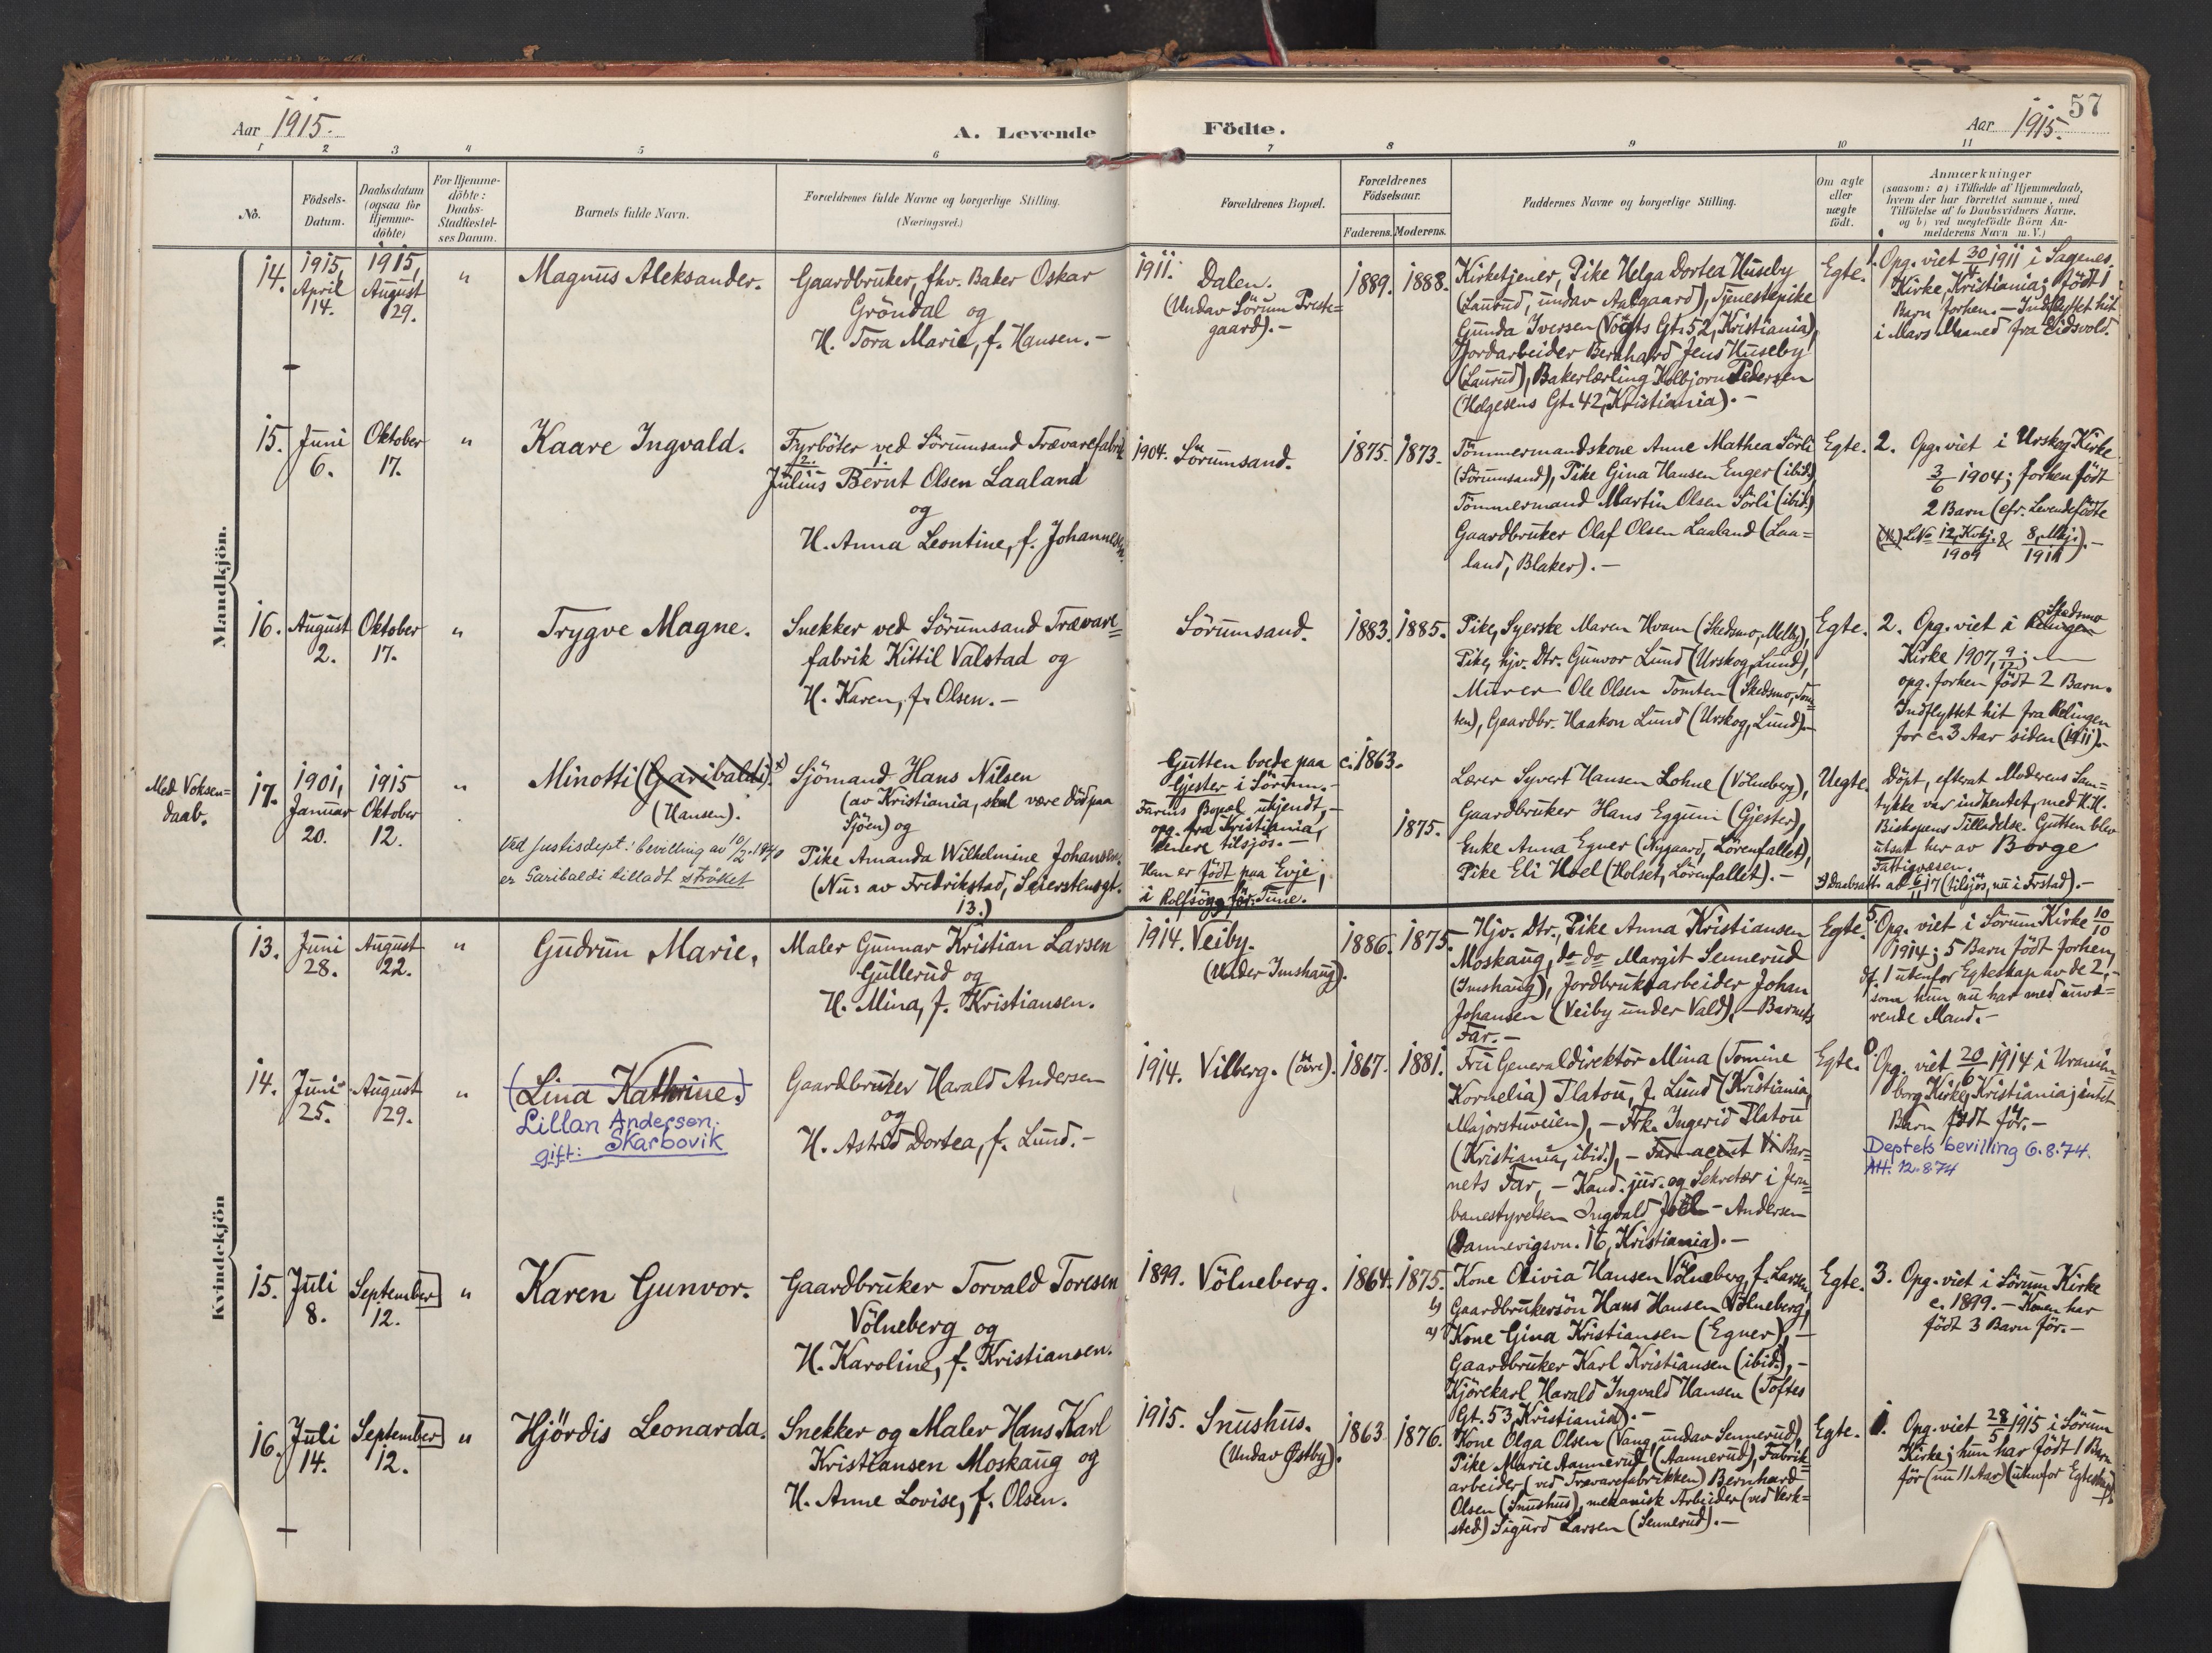 Aar 1915.
A. Levende
Födte.
Aar 1915.
57
1 2 3 4 5 6 7 8 9 10 11
No.
Födsels-
Datum.
Daabsdatum
(ogsaa for
Hjemme-
döbte)
For Hjemme-
döbte:
Daabs-
Stadfæstel-
ses Datum.
Barnets fulde Navn.
Forældrenes fulde Navne og borgerlige Stilling.
(Næringsvei.)
Forældrenes Bopæl.
Forældrenes
Födselsaar.
Faderens. Moderens.
Faddernes Navne og borgerlige Stilling.
Om ægte
eller
uægte
födt.
Anmærkninger
(saasom: a) i Tilfælde af Hjemmedaab,
hvem der har forrettet samme, med
Tilföielse af to Daabsvidners Navne,
og b) ved uægtefödte Börn An-
melderens Navn m. V.)
Mandkjön.
14.
1915,
April
14.
1915,
August
29.
"
Magnus Aleksander.
Gaardbruker, fhv. Baker Oskar
Gröndal og
H. Tora Marie, f. Hansen.-
1911. Dalen.
(Undav Sörum Preste=
gaard).-
1889. 1888.
Kirketjener, Pike Helga Dortea Huseby
(Laurud, undav Aalgaard), Tjenestepike
Gunda Iversen (Vogts Gt. 52, Kristiania),
Jordarbeider Bernhard Jens Huseby
(Laurud), Bakerlærling Kolbjorn Pedersen
(Helgesens Gt. 42, Kristiania).-
Egte.
1. Opg. viet 30/4 1911 i Sagenes
Kirke, Kristiania; födt 1
Barn forhen.- Indflyttet hit
i Mars Maaned fra Eidsvold.
15.
Juni
6.
Oktober
17.
"
Kaare Ingvald.
Fyrböter ved Sörumsand Trævarefabrik
2. 1.
Julius Bernt Olsen Laaland
og
H. Anna Leontine, f. Johannesen.
1904. Sörumsand.
1875. 1873.
Tömmermandskone Anne Mathea Sörli
(Sörumsand), Pike Gina Hansen Enger (ibid.),
Tömmermand Martin Olsen Sörli (ibid.)
Gaardbruker Olaf Olsen Laaland (Laa=
land, Blaker).-
Egte.
2. Opg. viet i Urskog Kirke
3/6 1904; forhen födt
2 Barn (cfr. Levendefödte
L№ 12, Kvkj. 1909 & 8, Mkj. 1911).-
16.
August
2.
Oktober
17.
"
Trygve Magne.
Snekker ved Sörumsand Trævare=
fabrik Kittil Valstad og
H. Karen, f. Olsen.-
Sörumsand.
1883. 1885.
Pike, Syerske Maren Hvam (Skedsmo, Melby),
Pike, hjv. Dtr. Gunvor Lund (Urskog, Lund),
Murer Ole Olsen Tomten (Skedsmo, Tom=
ten), Gaardbr. Haakon Lund (Urskog, Lund).-
Egte.
2. Opg. viet i Rælingen Skedsmo
Kirke 1907, 9/12;
opg. forhen födt 2 Barn.
Indflyttet hit fra Rælingen
for c. 3 Aar siden (1911).-
Med Voksen=
daab.
17.
1901,
Januar
20.
1915
Oktober
12.
"
Minotti (Garibaldi) x)
(Hansen).
Ved Justisdept.' bevilling av 10/2-1940
er Garibaldi tilladt strøket
Sjömand Hans Nilsen
(av Kristiania, skal være död paa
Sjöen) og
Pike Amanda Wilhelmine Johansen.
(Nu: av Fredrikstad,
13.)
Gutten boede paa
Gjester i Sörum.-
Farens Bopæl ukjendt,-
opg. fra Kristiania,
senere tilsjös.-
Han er födt paa Evje,
i Rolfsöy, för: Tune.
c. 1863.
1875.
Lærer Syvert Hansen Lohne (Völneberg),
Gaardbruker Hans Eggum (Gjester),
Enke Anna Egner (Nygaard, Lörenfallet),
Pike Eli Hoel (Holset, Lörenfallet).-
Uegte.
Döpt, efterat Moderens Sam=
tykke var indhentet, med H.H.
Biskopens Tilladelse. Gutten blev
utsat her av Borge
Fattigvæsen.
x) Daabsatt. at 6/11 17 (tilsjös, nu i Frstad).-
Kvindekjön
13.
Juni
28.
August
22.
"
Gudrun Marie.
Maler Gunnar Kristian Larsen
Gullerud og
H. Mina, f. Kristiansen.
1914. Veiby.
(Under Imshaug).
1886. 1875.
Hjv. Dtr., Pike Anna Kristiansen
Moskaug, do do Margit Sennerud
(Imshaug), Jordbruksarbeider Johan
Johansen (Veiby under Vald),- Barnets
Far.-
Egte.
5. Opg. viet i Sörum Kirke 10/10
1914; 5 Barn födt forhen,
df. 1 utenfor Egteskap av de 2,-
som hun nu har med nuvæ=
rende Mand.-
14.
Juni
25.
August
29.
"
(Lina Kathrine.)
Lillan Andersen.
gift: Skarbovik
Gaardbruker Harald Andersen
og
H. Astrid Dortea, f. Lund.-
1914. Vilberg. (övre).
1867. 1881.
Fru Generaldirektör Mina (Tomine
Kornelia) Platou, f. Lund (Kristiania,
Majorstuveien),- Frk. Ingerid Platou
(Kristiania, ibid.),- Bar=
nets Far,- Kand. jur. og Sekretær i Jern=
banestyrelsen Ingvald - Andersen
(Dannevigsvn. 16, Kristiania).-
Egte.
0. Opg. viet 20/6 1914 i Uranien=
borg Kirke, Kristiania; intet
Barn födt för.-
Deptets bevilling 6.8.74.
Att. 12.8.74
15.
Juli
8.
September
12.
"
Karen Gunvor.
Gaardbruker Torvald Toresen
Völneberg og
H. Karoline, f. Kristiansen.
1899. Völneberg.
1864. 1875.
Kone Olivia Hansen Völneberg, f. Larsen,
b) Gaardbrukersön Hans Hansen Völneberg,
a) Kone Gina Kristiansen (Egner),-
Gaardbruker Karl Kristiansen (ibid.),-
Kjörekarl Harald Ingvald Hansen (Toftes
Gt. 53, Kristiania).-
Egte.
3. Opg. viet i Sörum Kirke
c. 1899.- Konen har
födt 3 Barn för.-
16.
Juli
14.
September
12.
"
Hjördis Leonarda.
Snekker og Maler Hans Karl
Kristiansen Moskaug og
H. Anne Lovise, f. Olsen.
1915. Snushus.
(Undav Østby).
1863 1876.
Kone Olga Olsen (Vang undav Sennerud),
Pike Marie Aannerud (Aannerud), Fabrik=
arbeider (ved Trævarefabrikken) Bernhard
Olsen (Snushus), mekanisk Arbeider (ved Verk=
sted) Sigurd Larsen (Sennerud).-
Egte.
1. Opg. viet 28/5 1915 i Sörum
Kirke; hun har födt 1 Barn
för (nu 11 Aar) (utenfor Egteskap).